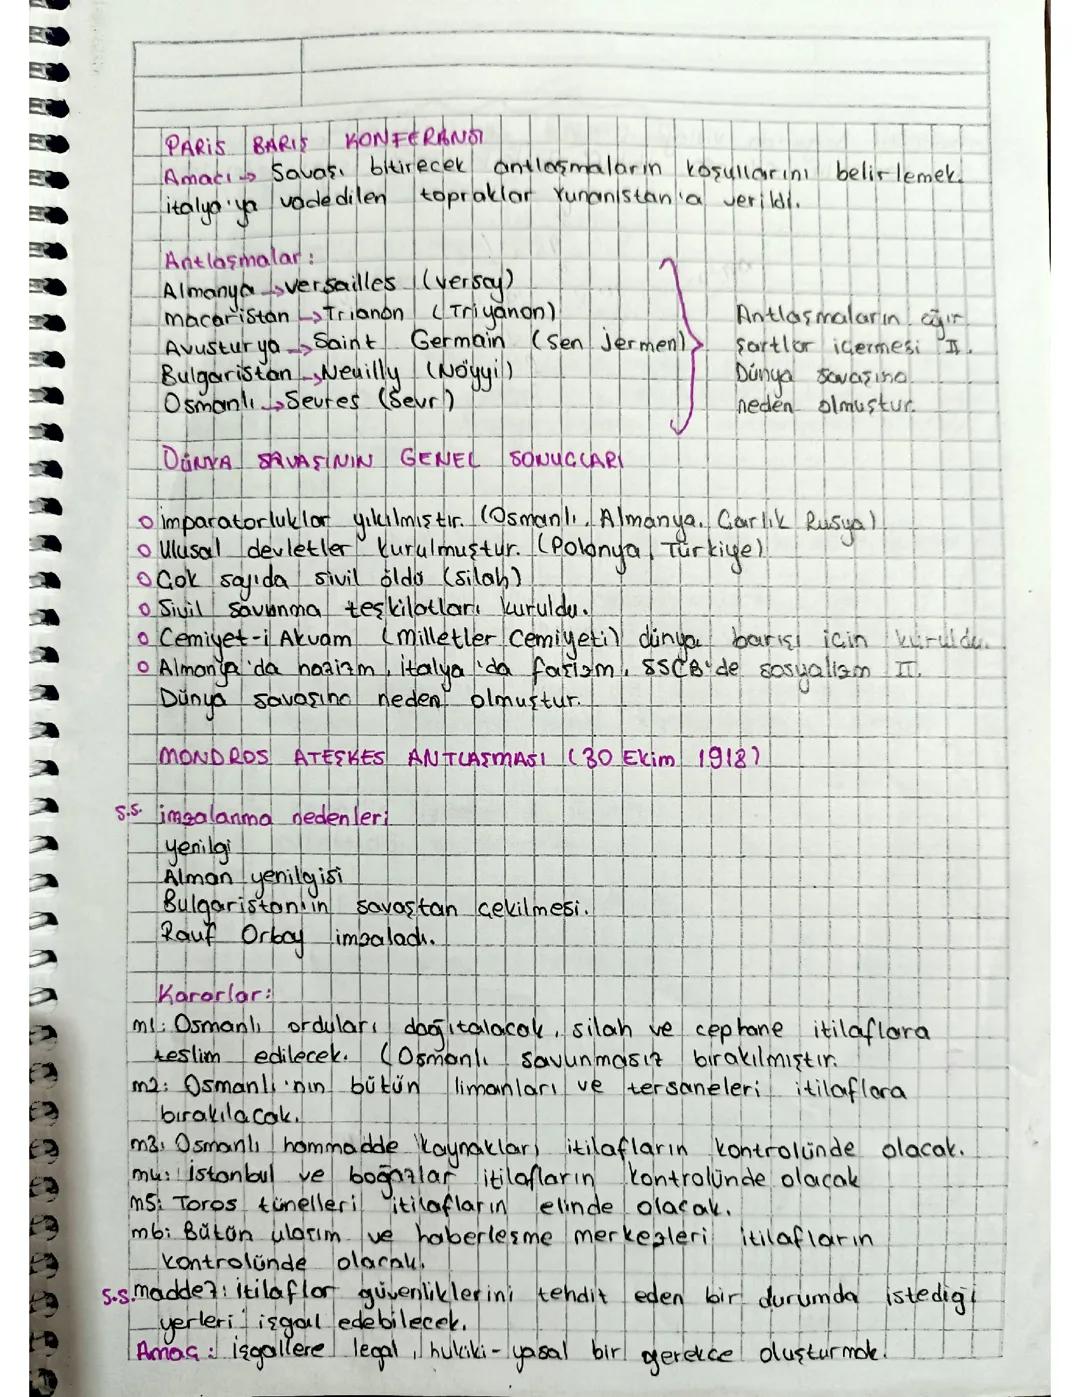 PARİS BARIŞ KONFERANSI
Amacı → Savaşı bitirecek antlaşmaların koşullarını belirlemek.
italya'ya vadedilen topraklar Yunanistan'a verildi.
Antlaşmalar:
Almanya → versailles (versay)
macaristan → Trianon (Triyanon)
Avusturya → Saint Germain (Sen Jermen)
Bulgaristan → Neuilly (Nöyyi)
Osmanlı → Sevres (Sevr)
Antlaşmaların ağır
şartlar içermesi II.
Dünya savaşına
neden olmuştur.
DÜNYA SAVAŞININ GENEL SONUÇLARI
o imparatorluklar yıkılmıştır. (Osmanlı, Almanya, Çarlık Rusya)
o Ulusal devletler kurulmuştur. (Polonya, Türkiye)
o Çok sayıda sivil öldü (silah)
o Sivil savunma teşkilatları kuruldu.
o Cemiyet-i Akvam (milletler Cemiyeti) dünya barışı için kuruldu.
o Almanya'da nazizm, italya'da faşizm, SSCB'de sosyalizm II.
Dünya savaşına neden olmuştur.
MONDROS ATEŞKES ANTLAŞMASI (30 Ekim 1918)
S.S. imzalanma nedenleri
yenilgi
Alman yenilgisi
Bulgaristan'ın savaştan çekilmesi.
Rauf Orbay imzaladı.
Kararlar:
m1: Osmanlı orduları dağıtalacak, silah ve cephane itilaflara
teslim edilecek. (Osmanlı savunmasız bırakılmıştır.
m2: Osmanlı'nın bütün limanları ve tersaneleri itilaflara
bırakılacak.
m3: Osmanlı hammadde kaynakları itilafların kontrolünde olacak.
m4: istanbul ve boğazlar itilafların kontrolünde olacak
m5: Toros tünelleri itilafların elinde olacak.
m6: Bütün ulaşım ve haberleşme merkezleri itilafların
kontrolünde olacak.
S.S. madde7: itilaflar güvenliklerini tehdit eden bir durumda istediği
yerleri işgal edebilecek.
Amaç: işgallere legal, hukiki-yasal bir gerekçe oluşturmak.